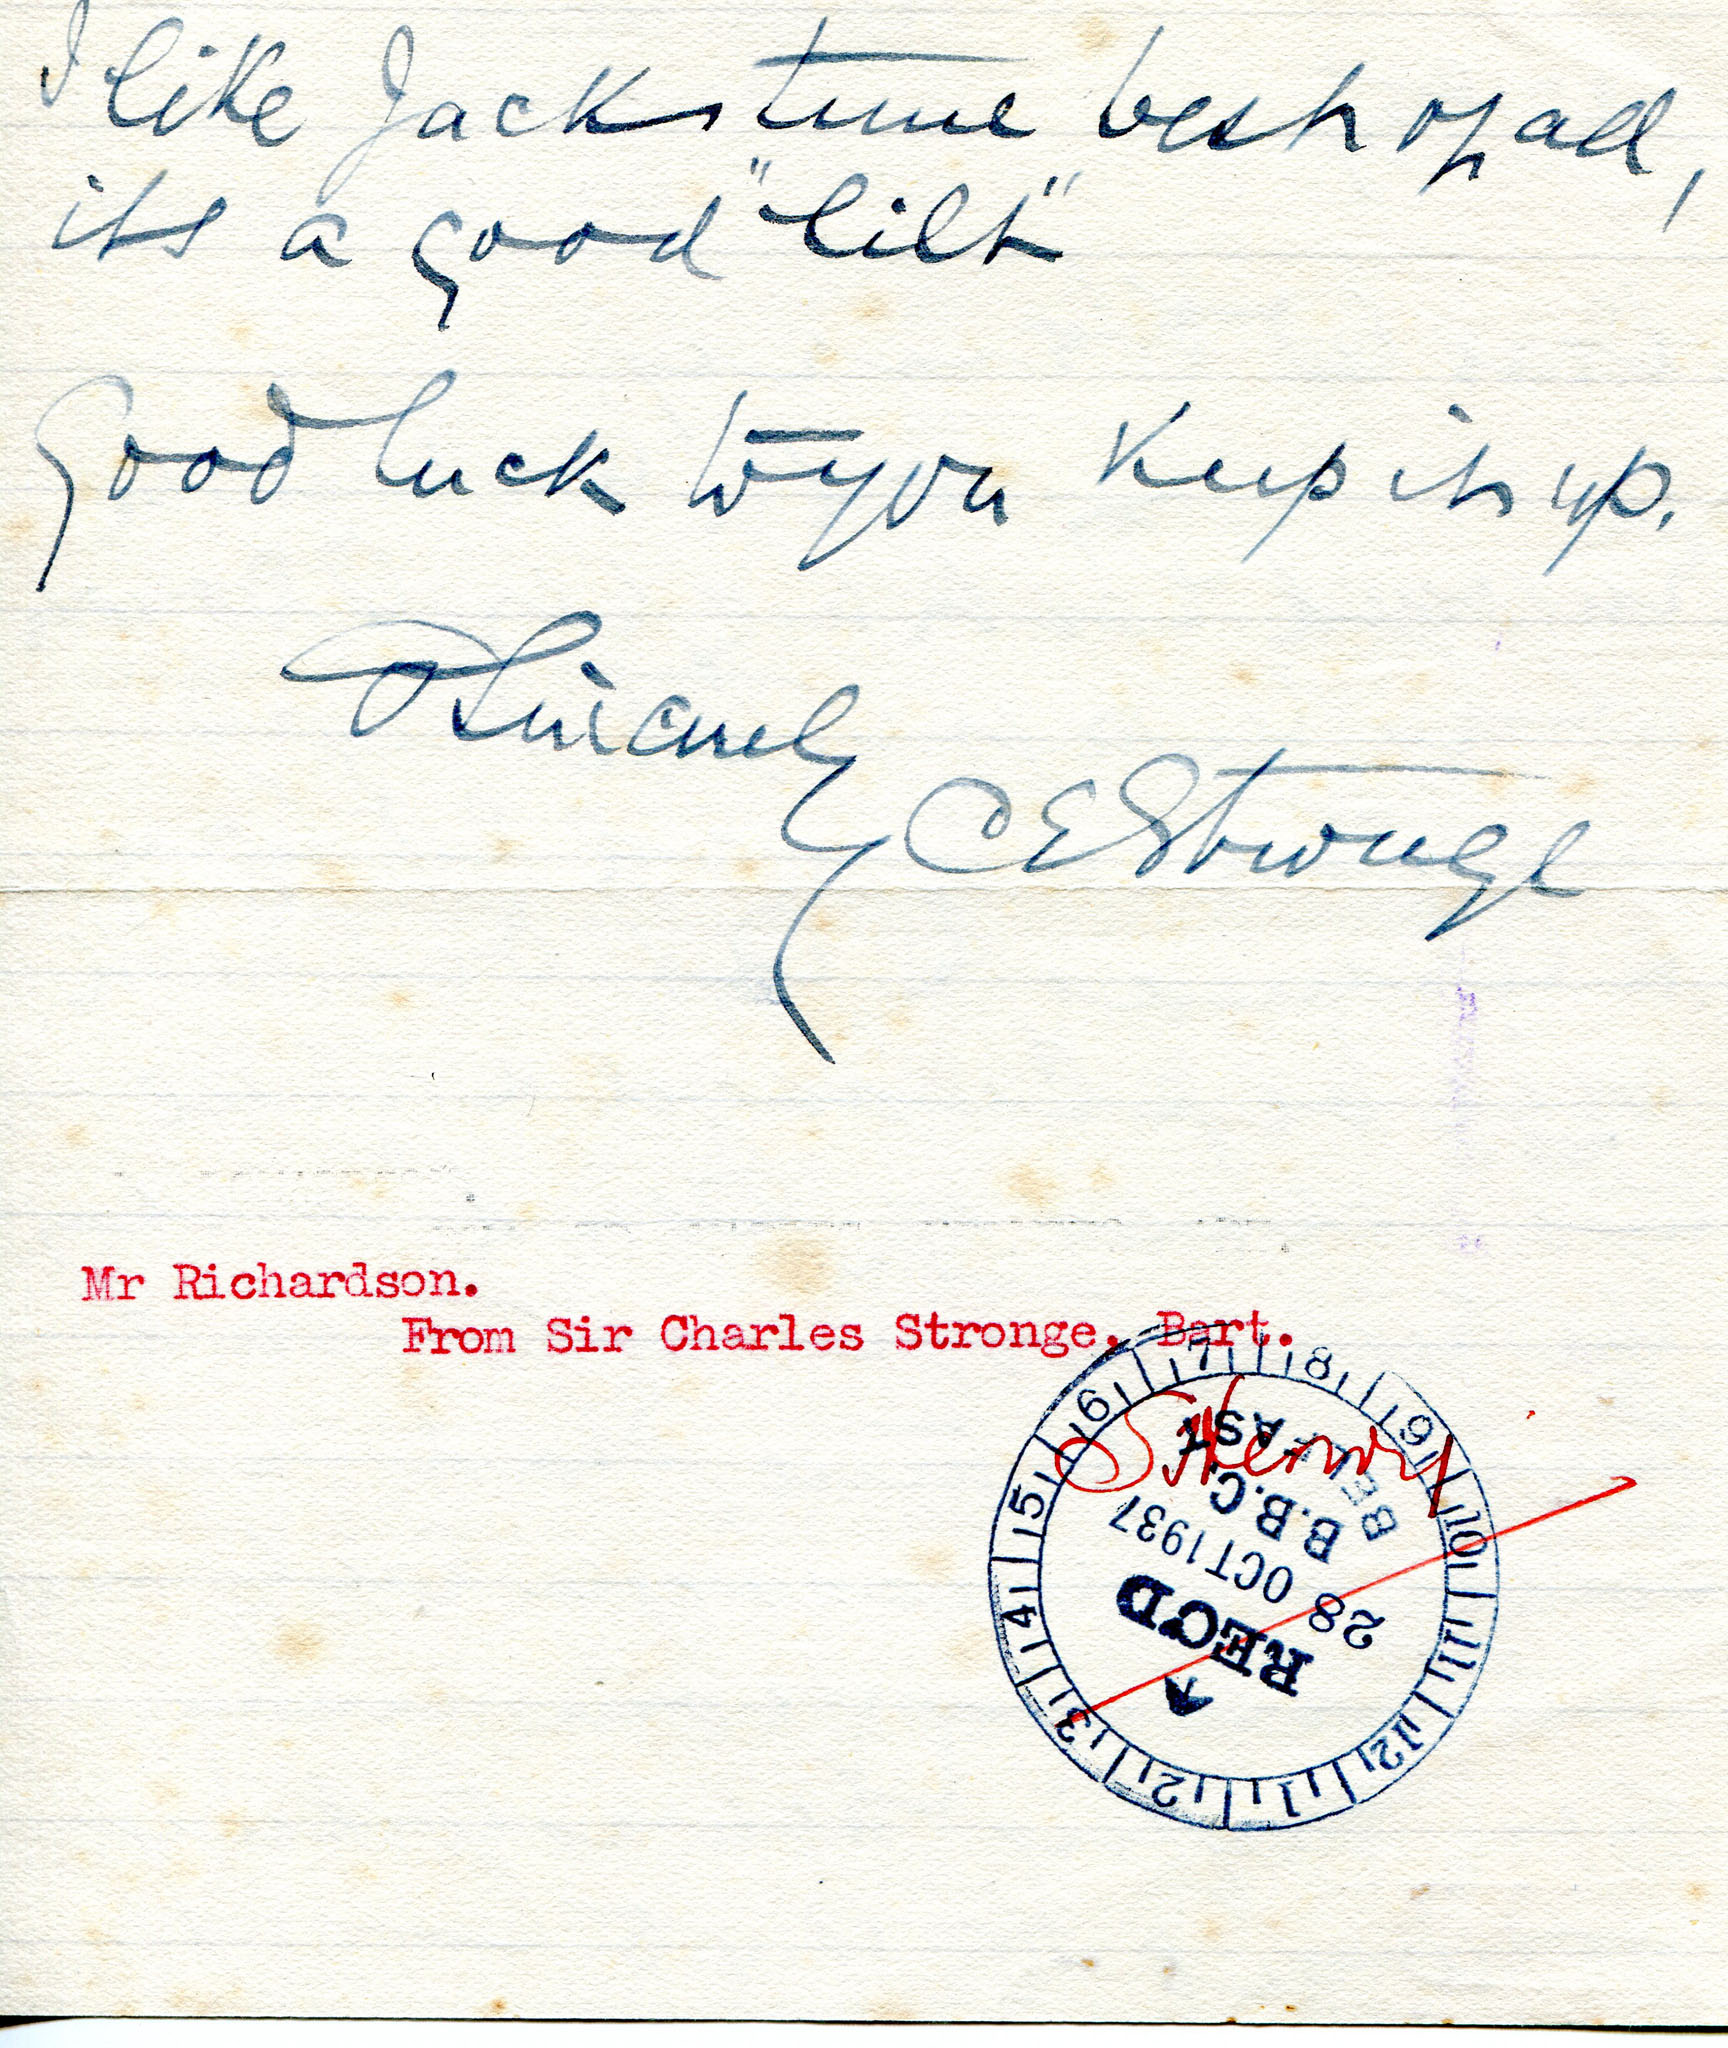 I like Jacks tune best of all,
its a good "lilt"
Good luck to you keep it up.
Sincerely
C E Stronge
Mr Richardson.
From Sir Charles Stronge, Bart.
S Henry
REC'D
28 OCT 1937
B.B.C.
BELFAST
1 2 3 4 5 6 7 8 9 10 11 12